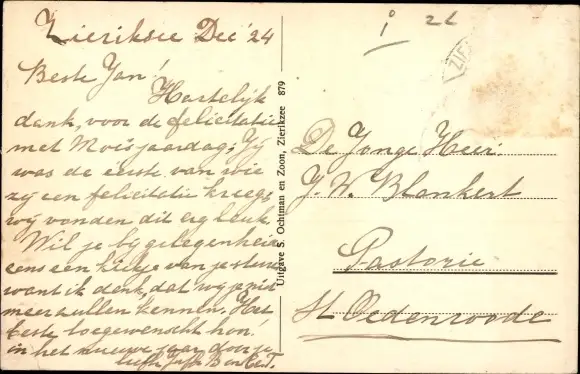 Zieriksee Dec '24
Beste Jan!
Hartelijk
dank, voor de felicitatie
met Moe's jaardag; Jij
was de eerste van wie
zij een felicitatie kreeg,
wij vonden dit erg leuk
Wil je bij gelegenheid
eens een kiekje van je sturen
want ik denk, dat wij je niet
meer zullen kennen. Het
beste toegewenscht hoor!
in het nieuwe jaar door je
Uitgave S. Ochtman en Zoon, Zierikzee 879
i 22
ZIE
De Jonge Heer
J. W. Blankert
Pastorie
St Oedenroode